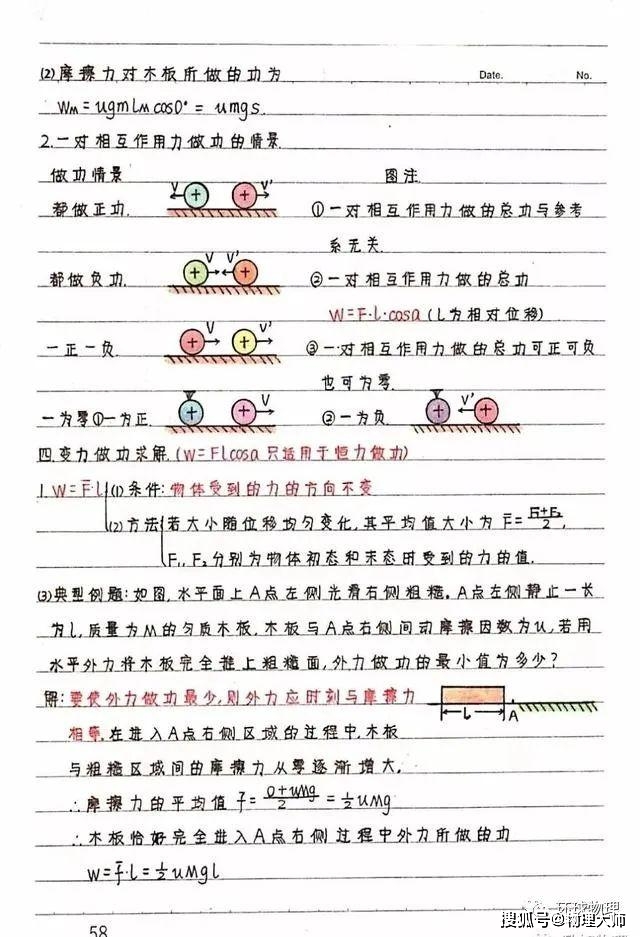 (2)摩擦力对木板所做的功为
Date.
No.
WM=ugmLMcos0°=umgs.
2.一对相互作用力做功的情景
做功情景
图注
V
V'
+
+
都做正功.
①一对相互作用力做的总功与参考
系无关.
V
V'
+
+
都做负功.
②一对相互作用力做的总功
W=F·l·cosa(l为相对位移)
V
V'
+
+
一正一负.
③一对相互作用力做的总功可正可负
也可为零.
+
+
V
+
V'
+
一为零①一为正.
②一为负.
四.变力做功求解.(W=Flcosa只适用于恒力做功)
1.W=F̄·l(1)条件:物体受到的力的方向不变
(2)方法 若大小随位移均匀变化,其平均值大小为F̄=F₁+F₂/2,
F₁,F₂分别为物体初态和末态时受到的力的值.
(3)典型例题:如图,水平面上A点左侧光滑右侧粗糙。A点左侧静止一长
为l,质量为M的匀质木板,木板与A点右侧间动摩擦因数为u,若用
水平外力将木板完全推上粗糙面,外力做功的最小值为多少?
解:要使外力做功最少,则外力应时刻与摩擦力
L
A
相等.在进入A点右侧区域的过程中,木板
与粗糙区域间的摩擦力从零逐渐增大.
∴摩擦力的平均值f̄=0+uMg/2=½uMg
∴木板恰好完全进入A点右侧过程中外力所做的功
W=f̄·l=½uMgl
58
环球物理
搜狐号@物理大师